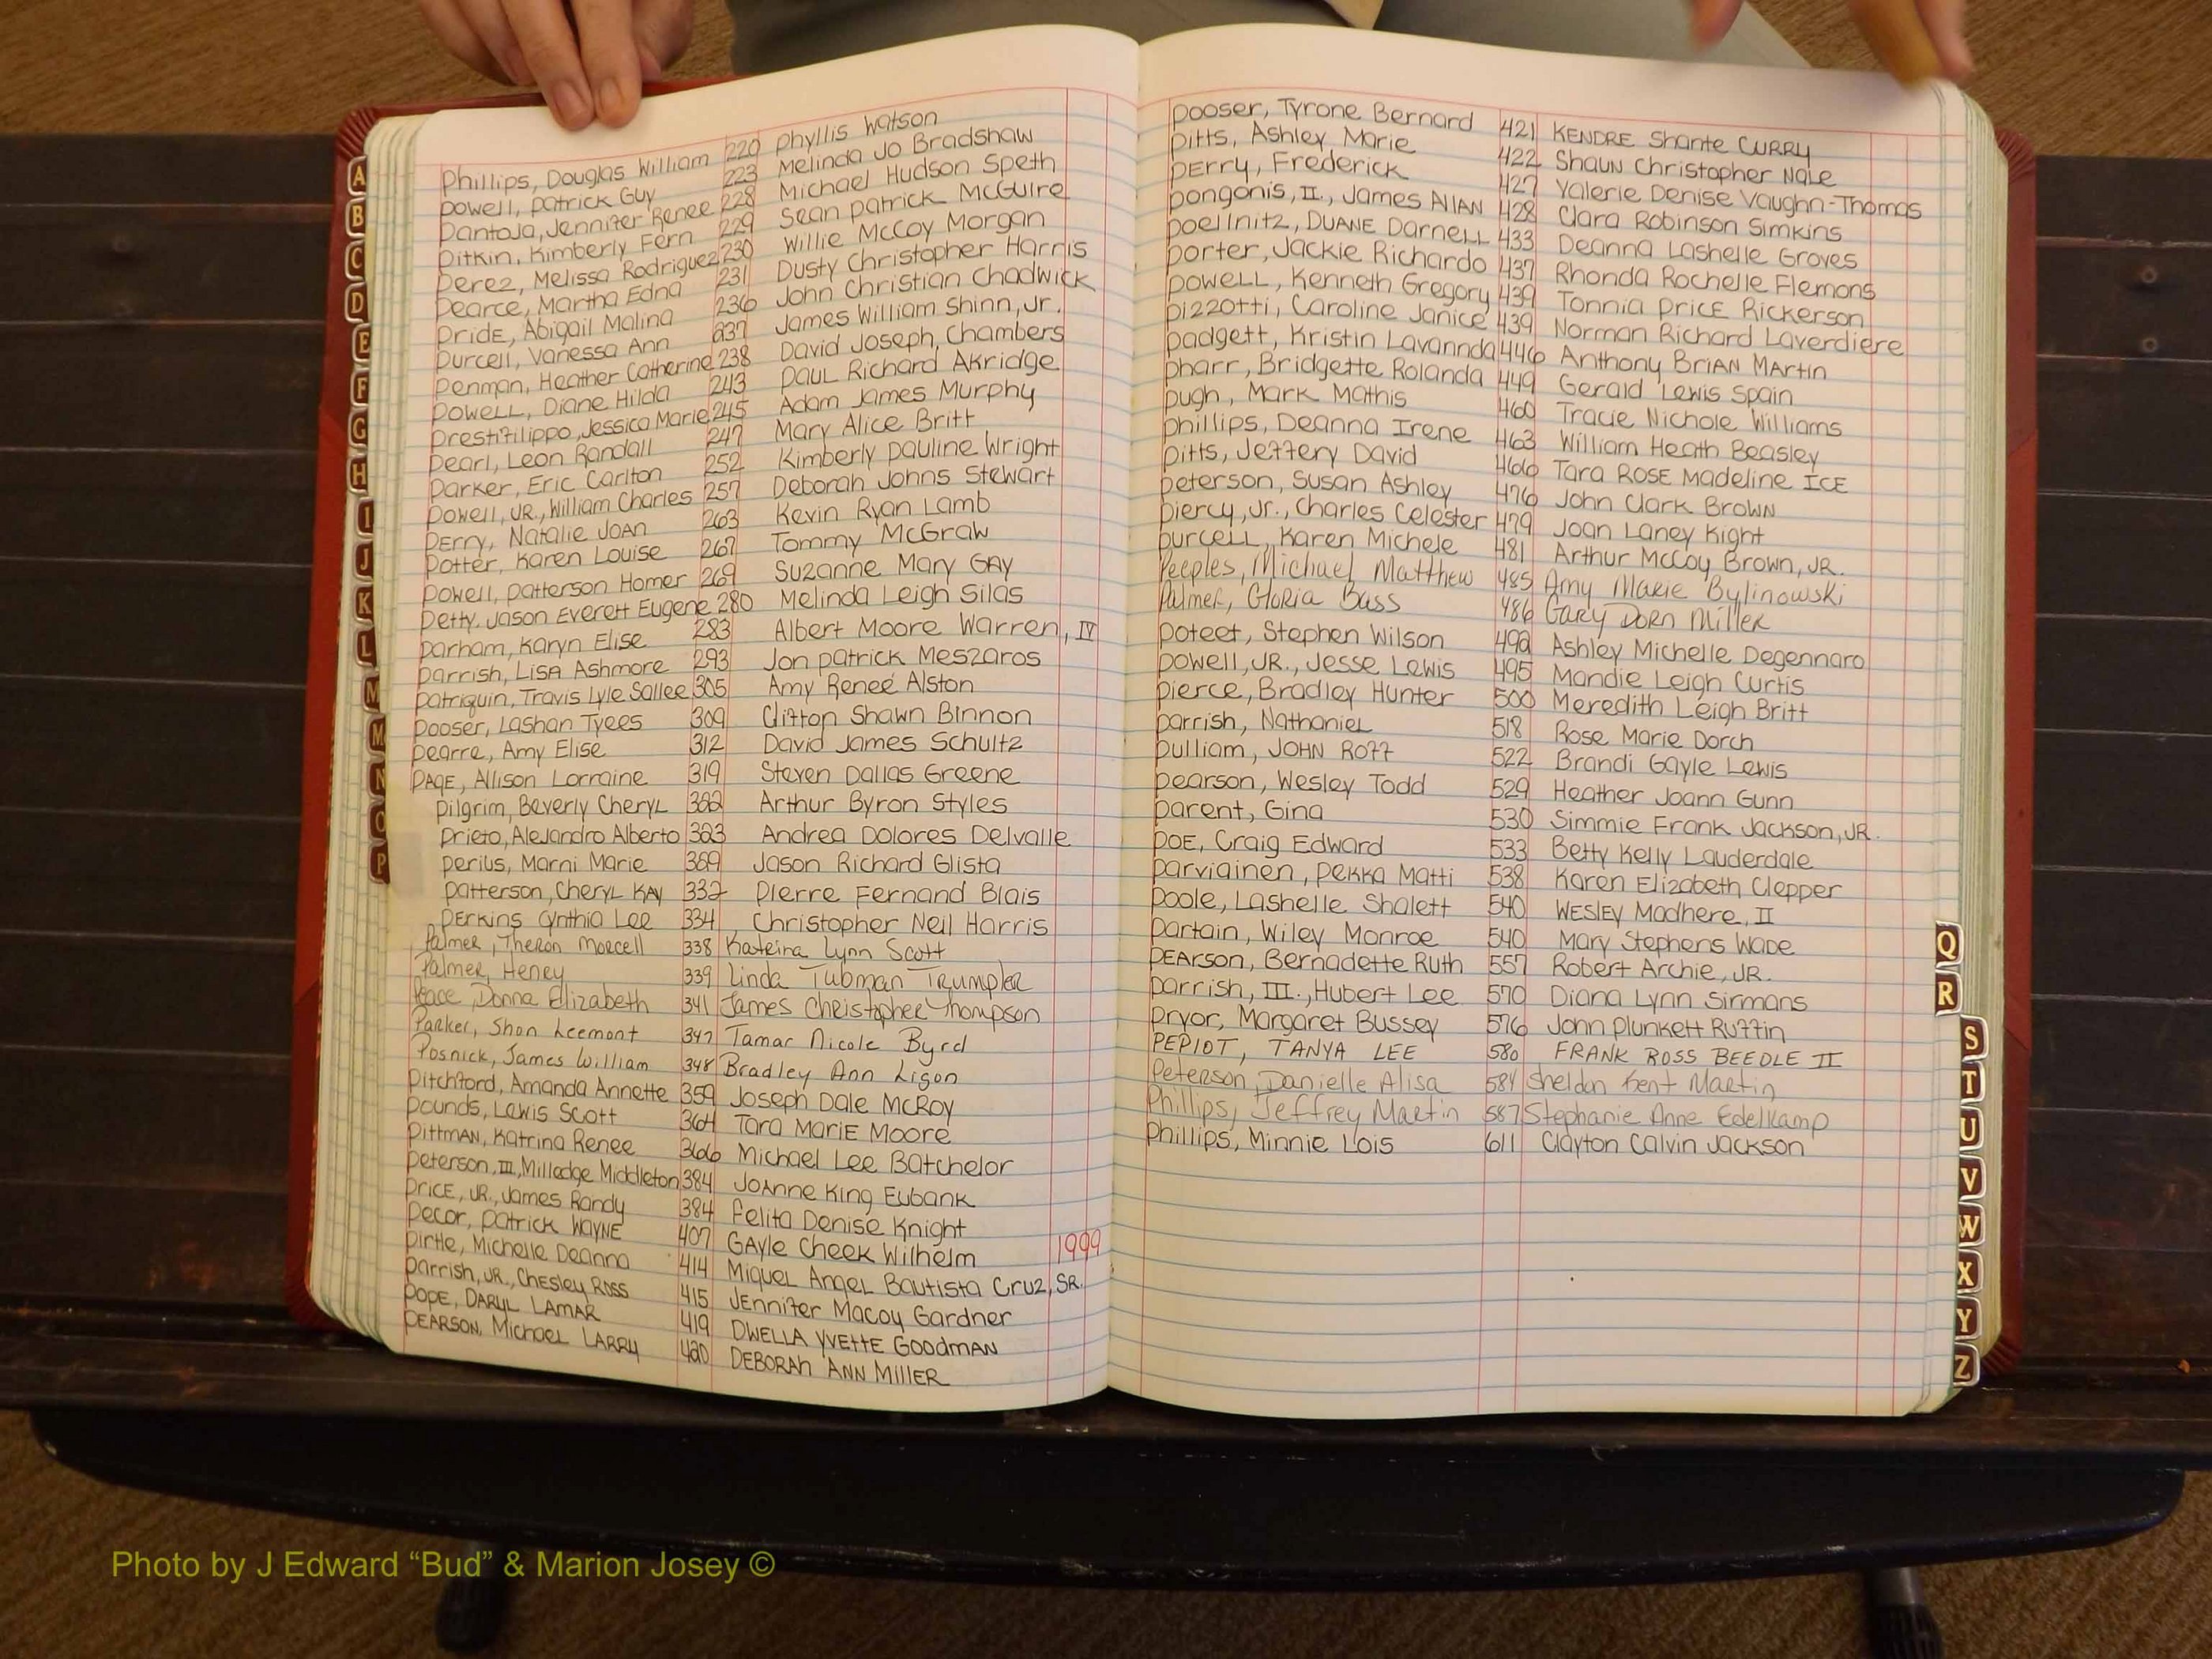 Phillips, Douglas William 220 Phyllis Watson
Powell, Patrick Guy 223 Melinda Jo Bradshaw
Pantoja, Jennifer Renee 228 Michael Hudson Speth
Pitkin, Kimberly Fern 229 Sean Patrick McGuire
Perez, Melissa Rodriguez 230 Willie McCoy Morgan
Pearce, Martha Edna 231 Dusty Christopher Harris
Pride, Abigail Malina 236 John Christian Chadwick
Purcell, Vanessa Ann 237 James William Shinn, Jr.
Penman, Heather Catherine 238 David Joseph Chambers
Powell, Diane Hilda 243 Paul Richard Akridge
Prestifilippo, Jessica Marie 245 Adam James Murphy
Pearl, Leon Randall 247 Mary Alice Britt
Parker, Eric Carlton 252 Kimberly Pauline Wright
Powell, JR., William Charles 257 Deborah Johns Stewart
Perry, Natalie Joan 263 Kevin Ryan Lamb
Potter, Karen Louise 267 Tommy McGraw
Powell, Patterson Homer 269 Suzanne Mary Gay
Petty, Jason Everett Eugene 280 Melinda Leigh Silas
Parham, Karyn Elise 283 Albert Moore Warren, IV
Parrish, Lisa Ashmore 293 Jon Patrick Meszaros
Patriquin, Travis Lyle Sallee 305 Amy Reneé Alston
Pooser, Lashan Tyees 309 Clifton Shawn Binnon
Pearre, Amy Elise 312 David James Schultz
PAGE, Allison Lorraine 319 Steven Dallas Greene
Pilgrim, Beverly Cheryl 322 Arthur Byron Styles
Prieto, Alejandro Alberto 323 Andrea Dolores Delvalle
Perius, Marni Marie 329 Jason Richard Glista
Patterson, Cheryl Kay 332 Pierre Fernand Blais
Perkins Cynthia Lee 334 Christopher Neil Harris
Palmer, Theron Morcell 338 Kateira Lynn Scott
Palmer, Henry 339 Linda Tubman Trumpler
Peace, Donna Elizabeth 341 James Christopher Thompson
Parker, Shon Leemont 347 Tamar Nicole Byrd
Posnick, James William 348 Bradley Ann Ligon
Pitchford, Amanda Annette 359 Joseph Dale McRoy
Pounds, Lewis Scott 364 Tara Marie Moore
Pittman, Katrina Renee 366 Michael Lee Batchelor
Peterson, III, Milledge Middleton 384 JoAnne King Eubank
Price, JR., James Randy 384 Felita Denise Knight
Pecor, Patrick Wayne 407 Gayle Cheek Wilhelm 1999
Pirtle, Michelle Deanna 414 Miguel Angel Bautista Cruz, SR.
Parrish, JR., Chesley Ross 415 Jennifer Macoy Gardner
Pope, Daryl Lamar 419 Dwella Yvette Goodman
Pearson, Michael Larry 420 Deborah Ann Miller
Pooser, Tyrone Bernard 421 KENDRE Shante CURRY
Pitts, Ashley Marie 422 Shaun Christopher Nale
Perry, Frederick 427 Valerie Denise Vaughn-Thomas
Pongonis, II., James Allan 428 Clara Robinson Simkins
Poellnitz, DUANE Darnell 433 Deanna Lashelle Groves
Porter, Jackie Richardo 437 Rhonda Rochelle Flemons
Powell, Kenneth Gregory 439 Tonnia Price Rickerson
Pizzotti, Caroline Janice 439 Norman Richard Laverdiere
Padgett, Kristin Lavannda 446 Anthony Brian Martin
Pharr, Bridgette Rolanda 449 Gerald Lewis Spain
Pugh, Mark Mathis 460 Tracie Nichole Williams
Phillips, Deanna Irene 463 William Heath Beasley
Pitts, Jeffery David 466 Tara Rose Madeline ICE
Peterson, Susan Ashley 476 John Clark Brown
Piercy, Jr., Charles Celester 479 Joan Laney Kight
Purcell, Karen Michele 481 Arthur McCoy Brown, JR.
Peeples, Michael Matthew 485 Amy Marie Bylinowski
Palmer, Gloria Bass 486 Gary Dorn Miller
Poteet, Stephen Wilson 492 Ashley Michelle Degennaro
Powell, JR., Jesse Lewis 495 Mandie Leigh Curtis
Pierce, Bradley Hunter 500 Meredith Leigh Britt
Parrish, Nathaniel 518 Rose Marie Dorch
Pulliam, JOHN Roff 522 Brandi Gayle Lewis
Pearson, Wesley Todd 529 Heather Joann Gunn
Parent, Gina 530 Simmie Frank Jackson, JR.
POE, Craig Edward 533 Betty Kelly Lauderdale
Parviainen, Pekka Matti 538 Karen Elizabeth Clepper
Poole, Lashelle Shalett 540 Wesley Madhere, II
Partain, Wiley Monroe 540 Mary Stephens Wade
Pearson, Bernadette Ruth 557 Robert Archie, JR.
Parrish, III., Hubert Lee 570 Diana Lynn Sirmans
Pryor, Margaret Bussey 576 John Plunkett Ruffin
PEPIOT, TANYA LEE 580 FRANK ROSS BEEDLE II
Peterson, Danielle Alisa 584 Sheldon Kent Martin
Phillips, Jeffrey Martin 587 Stephanie Anne Edelkamp
Phillips, Minnie Lois 611 Clayton Calvin Jackson
A
B
C
D
E
F
G
H
I
J
K
L
M
M
N
O
P
Q
R
S
T
U
V
W
X
Y
Z
Photo by J Edward “Bud” & Marion Josey ©